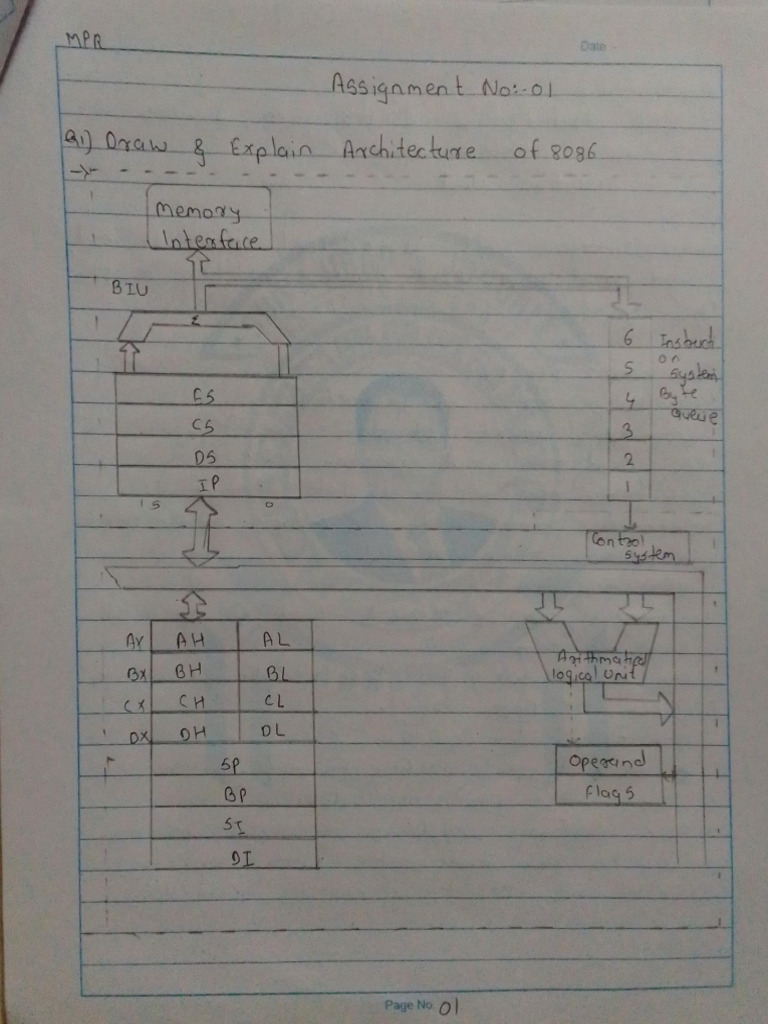 MPR
Date
Assignment No:-01
Q1) Draw & Explain Architecture of 8086
Memory
Interface
BIU
Σ
6 Instructi
on
5 system
4 Byte
Queue
3
2
1
ES
CS
DS
IP
15 0
Control
system
AX AH AL
BX BH BL
CX CH CL
DX DH DL
SP
BP
SI
DI
Arithmatic
logical Unit
Operand
flags
Page No. 01